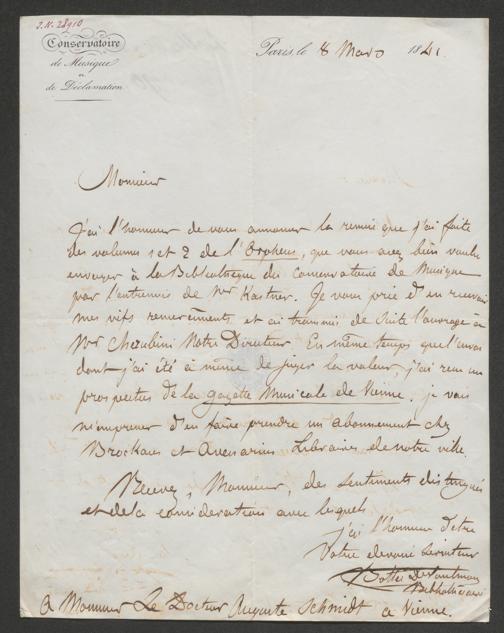 J.N. 28910
Conservatoire
de Musique
et
de Déclamation
Paris, le 8 Mars 1841
Monsieur
J'ai l'honneur de vous annoncer la remise que j'ai faite
des volumes 1 et 2 de l'Orpheus, que vous avez bien voulu
envoyer à la Bibliothèque du Conservatoire de Musique
par l'entremise de Mr Kastner. Je vous prie d'en recevoir
mes vifs remerciments, et ai transmis de suite l'ouvrage à
Mr Cherubini Notre Directeur. En même temps que l'envoi
dont j'ai été à même de juger la valeur, j'ai reçu un
prospectus de la gazette Musicale de Vienne. je vais
m'empresser d'en faire prendre un abonnement chez
Brockaus et Avenarius Libraires de notre ville.
Recevez, Monsieur, des sentiments distingués
et de la considération avec lesquels
j'ai l'honneur d'être
Votre dévoué Serviteur
Bottée De Toulmon
Bibliothécaire
A Monsieur Le Docteur Auguste Schmidt à Vienne.